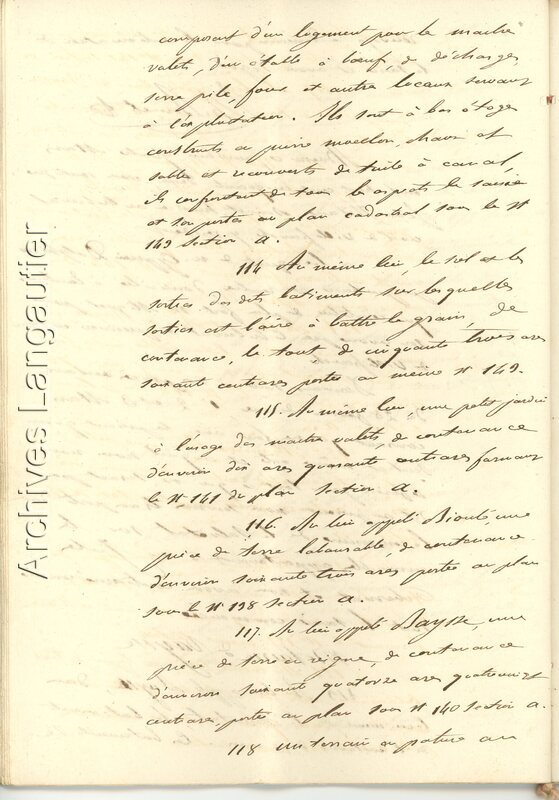 composent d'un logement pour le maitre
valets, d'un étable à bœuf, de décharges
serre pile, four et autre locaux servant
à l'exploitation. Ils sont à bas étages
construits en pierre moellon, chaux et
sable et recouverts de tuile à canal,
ils confrontent de tous les aspects la saisie
et son portés au plan cadastral sous le N°
149 section A.
114 Au même lieu, le sol et les
sorties des dits batiments sur lesquelles
sorties est l'aire à battre le grain, de
contenance, le tout, de cinquante trois ares
soixante centiares portés au même N° 149.
115. Au même lieu, une petit jardin
à l'usage des maitre valets, de contenance
d'environ dix ares quarante centiares formant
le N° 141 du plan section A.
116. Au lieu appelé une
pièce de terre labourable de contenance
d'environ soixante trois ares portée au plan
sous le N° 138 section A.
117. Au lieu appelé Baysse, une
pièce de terre en vigne, de contenance
d'environ soixante quatorze ares quatrevingt
centiares, portée au plan sous N° 140 section A.
118 un terrain en pature au
Archives Langautier